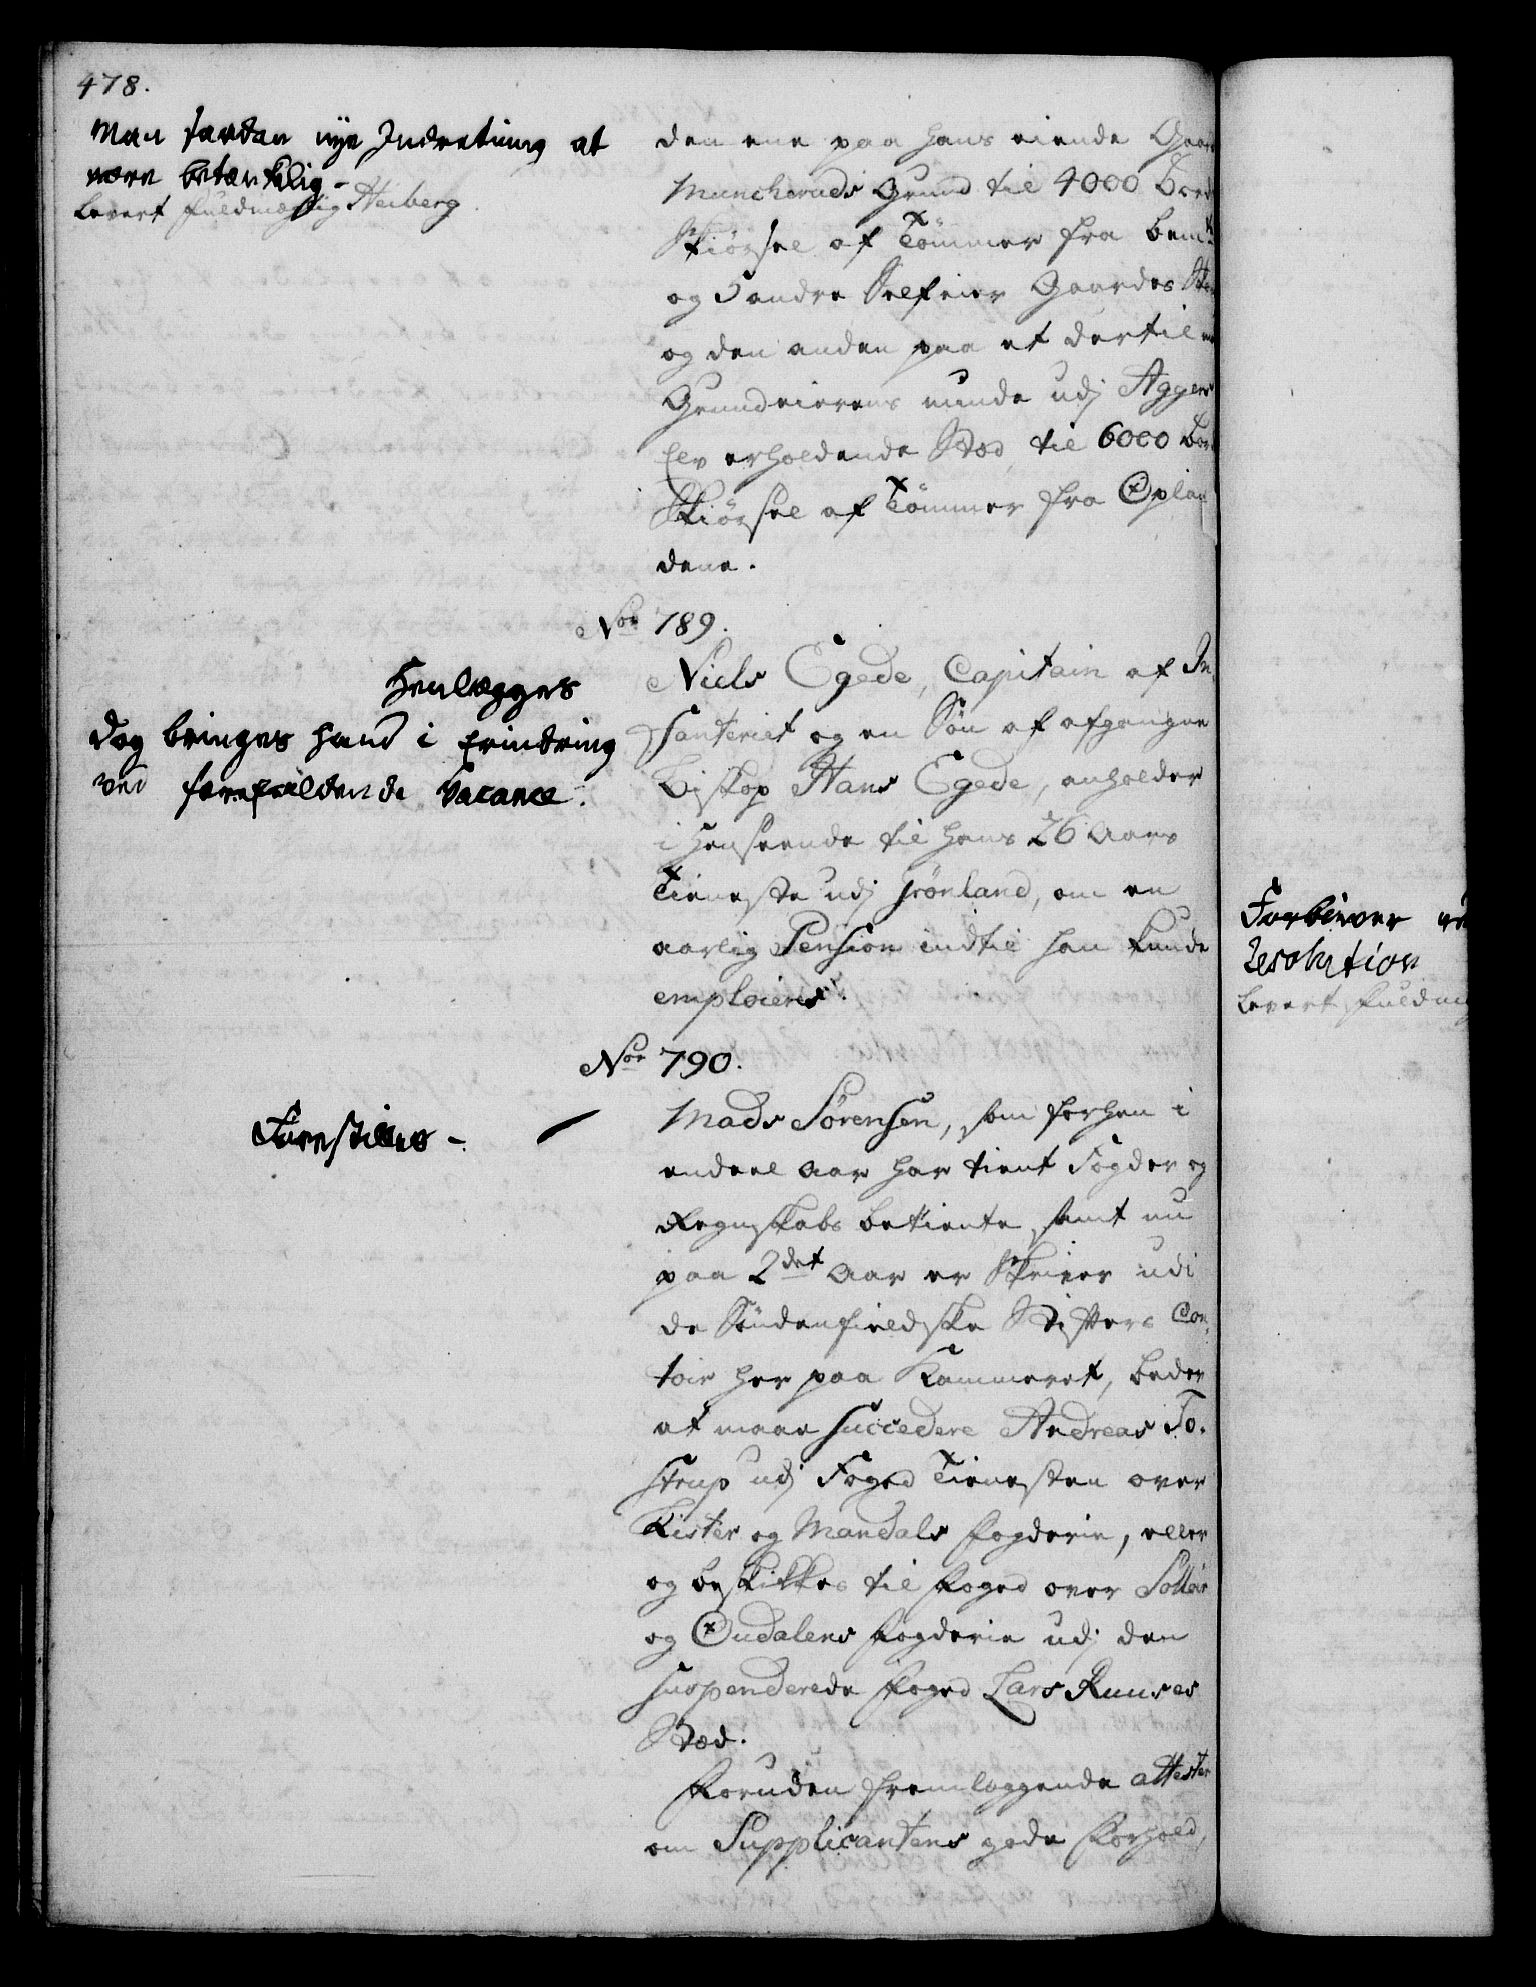 478.
Man fandtes nye Indretning at
være betænkelig.
Levert Fuldmægtig Heiberg.
den ene paa hans eiende Gaard
Muncheruds Grund til 4000 Bord
Skiørsel af Tømmer fra bemte
og 5 andre Selfeier Gaardes
og den anden paa et dertil
Grundeierens minde udj Aggers
Elv erholdende Stæd til 6000 Bord
Skiørsel af Tømmer fra Oplan
dene.
Nor 789.
Henlægges
dog bringes hand i Erindring
ved forefaldende Vacance.
Niels Egede, Capitain af In
fanteriet og en Søn af afgangne
Biskop Hans Egede, anholder
i henseende til hans 26 Aars
Tieneste udj Grønland, om en
aarlig Pension indtil han kunde
emploieres.
Nor 790.
Forestilles -
Mads Sørensen, som forhen i
endeel Aar har tient Fogder og
Regnskabs betiente, samt nu
paa 2det Aar er Skriver udi
de Søndenfieldske Stifters Con
toir her paa Kammeret, beder
at maae succedere Andreas To
strup udj Foged Tienesten over
Lister og Mandals Fogderie, eller
og beskikkes til Foged over Solløer
og Oudalens Fogderie udj den
suspenderede Foged Lars Ruuses
Stæd.
Foruden fremlæggende attester
om Supplicantens gode Forhold,
Forbliver ved
Resolution
Levert Fuldmæg